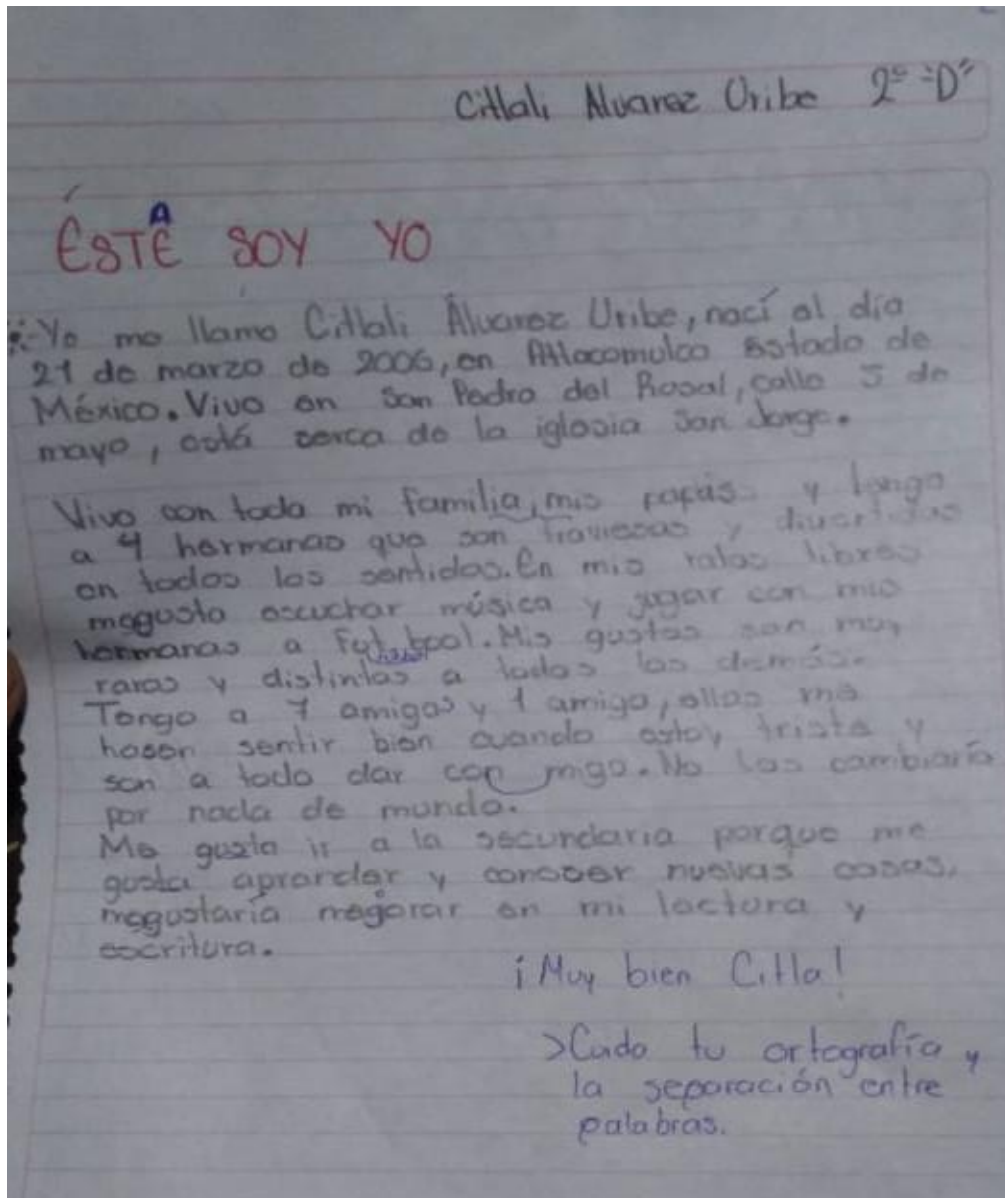 Citlali Alvarez Uribe 2º "D"
A
ÉSTE SOY YO
Yo me llamo Citlali Álvarez Uribe, nací el día
21 de marzo de 2006, en Atlacomulco Estado de
México. Vivo en San Pedro del Rosal, calle 5 de
mayo, está cerca de la iglesia San Jorge.
Vivo con toda mi familia, mis papás y tengo
a 4 hermanas que son traviesas y divertidas
en todos los sentidos. En mis ratos libres
megusta escuchar música y jugar con mis
hermanas a Fut bool. Mis gustos son muy
raros y distintos a todos los demás.
Tengo a 7 amigas y 1 amigo, ellas me
hasen sentir bien cuando estoy triste y
son a todo dar con migo. No las cambiaría
por nada de mundo.
Me gusta ir a la secundaria porque me
gusta aprender y conocer nuevas cosas,
megustaría megorar en mi lectura y
escritura.
¡Muy bien Citla!
>Cuido tu ortografía y
la separación entre
palabras.